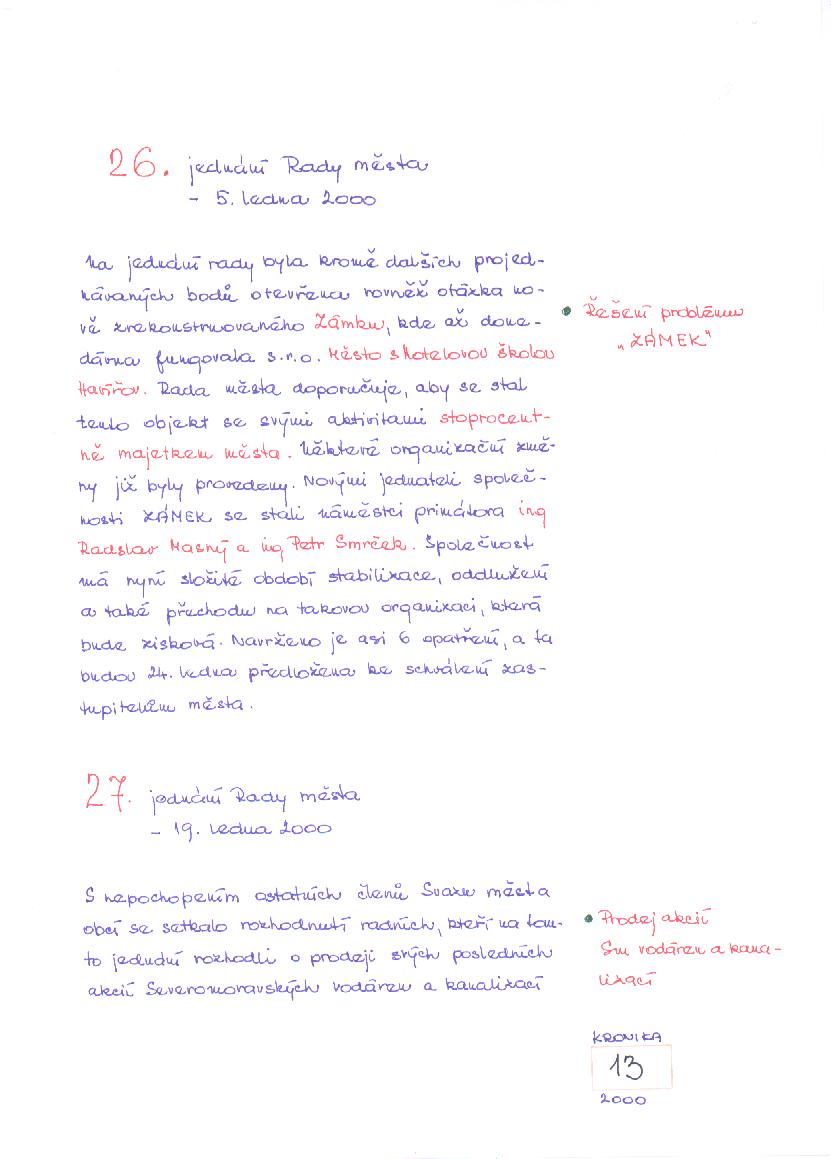 26. jednání Rady města
- 5. ledna 2000
Na jednání rady byla kromě dalších projed-
návaných bodů otevřena rovněž otázka no-
vě zrekonstruovaného Zámku, kde až done-
dávna fungovala s.r.o. Město s hotelovou školou
Havířov. Rada města doporučuje, aby se stal
tento objekt se svými aktivitami stoprocent-
ně majetkem města. Některé organizační změ-
ny již byly provedeny. Novými jednateli společ-
nosti ZÁMEK se stali náměstci primátora ing
Radslav Masný a ing Petr Smrček. Společnost
má nyní složité období stabilizace, oddlužení
a také přechodu na takovou organizaci, která
bude zisková. Navrženo je asi 6 opatření, a ta
budou 24. ledna předložena ke schválení zas-
tupitelům města.
• Řešení problému
„ZÁMEK"
27. jednání Rady města
- 19. ledna 2000
S nepochopením ostatních členů Svazu města
obcí se setkalo rozhodnutí radních, kteří na tom-
to jednání rozhodli o prodeji svých posledních
akcií Severomoravských vodáren a kanalizací
• Prodej akcií
Sm vodáren a kana-
lizací
KRONIKA
13
2000